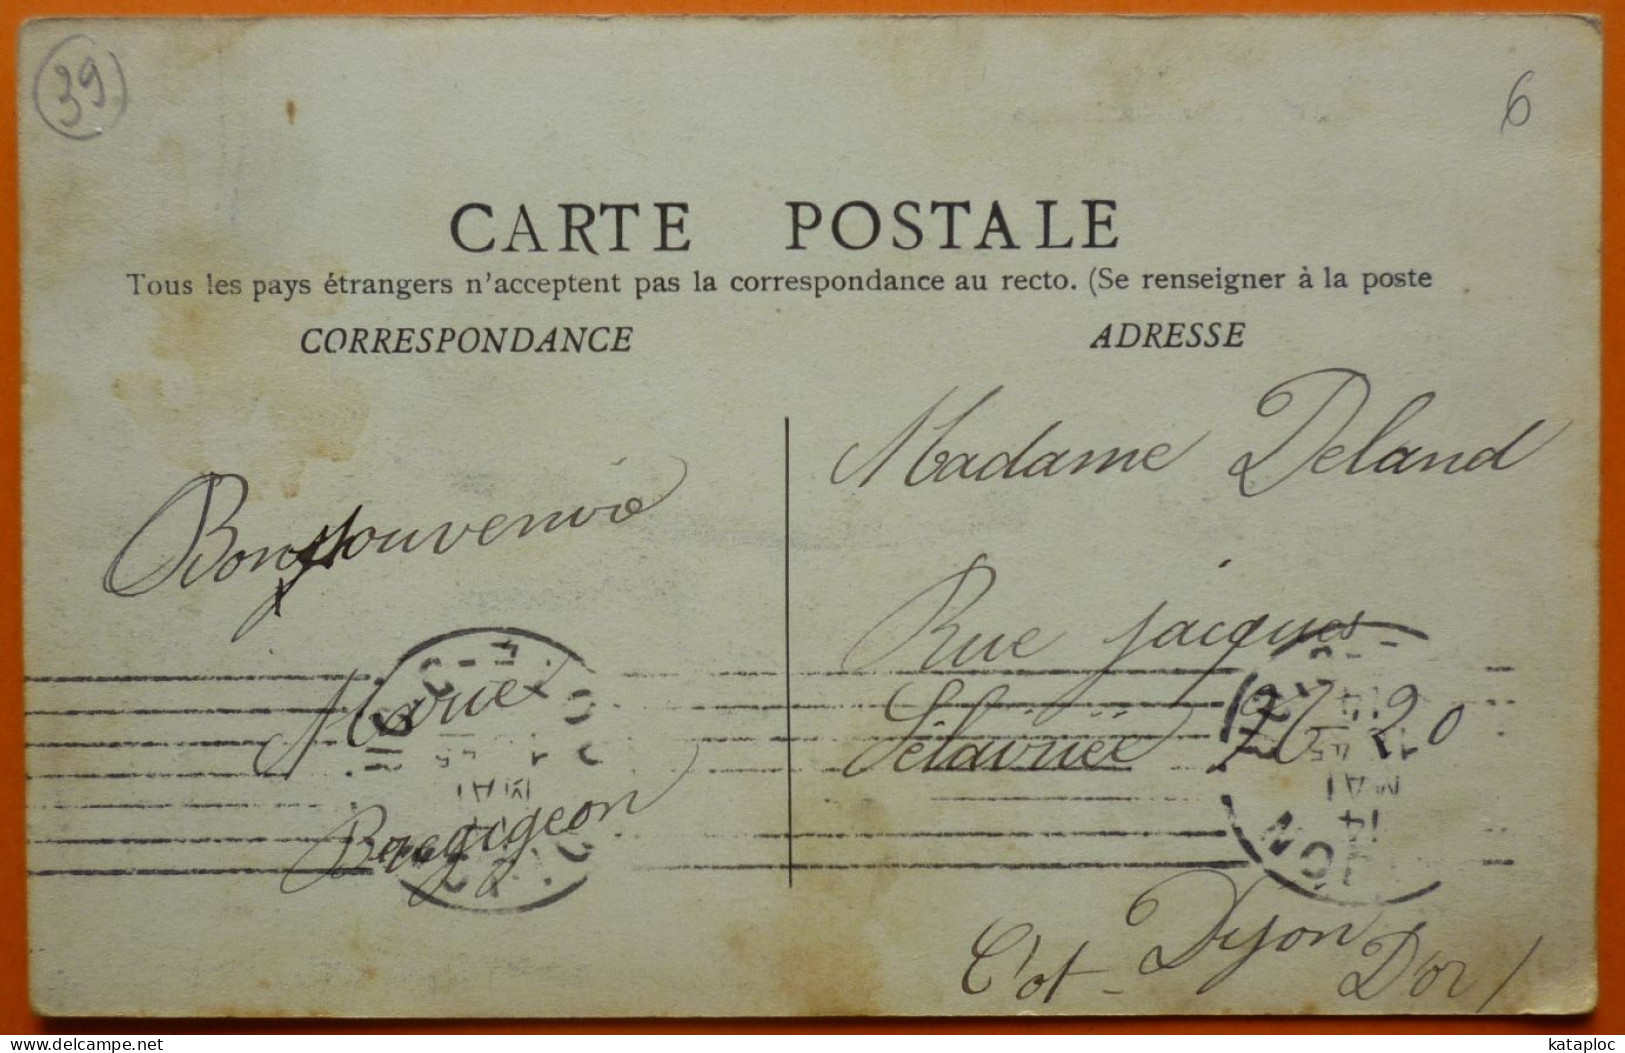 39
6
CARTE POSTALE
Tous les pays étrangers n'acceptent pas la correspondance au recto. (Se renseigner à la poste
CORRESPONDANCE
ADRESSE
Bonssouvenire
Marie
Bregigeon
Madame Deland
Rue jacques
N 20
Dijon
Cot-D'or
MAI
MAI
www.delcampe.net
kataploc